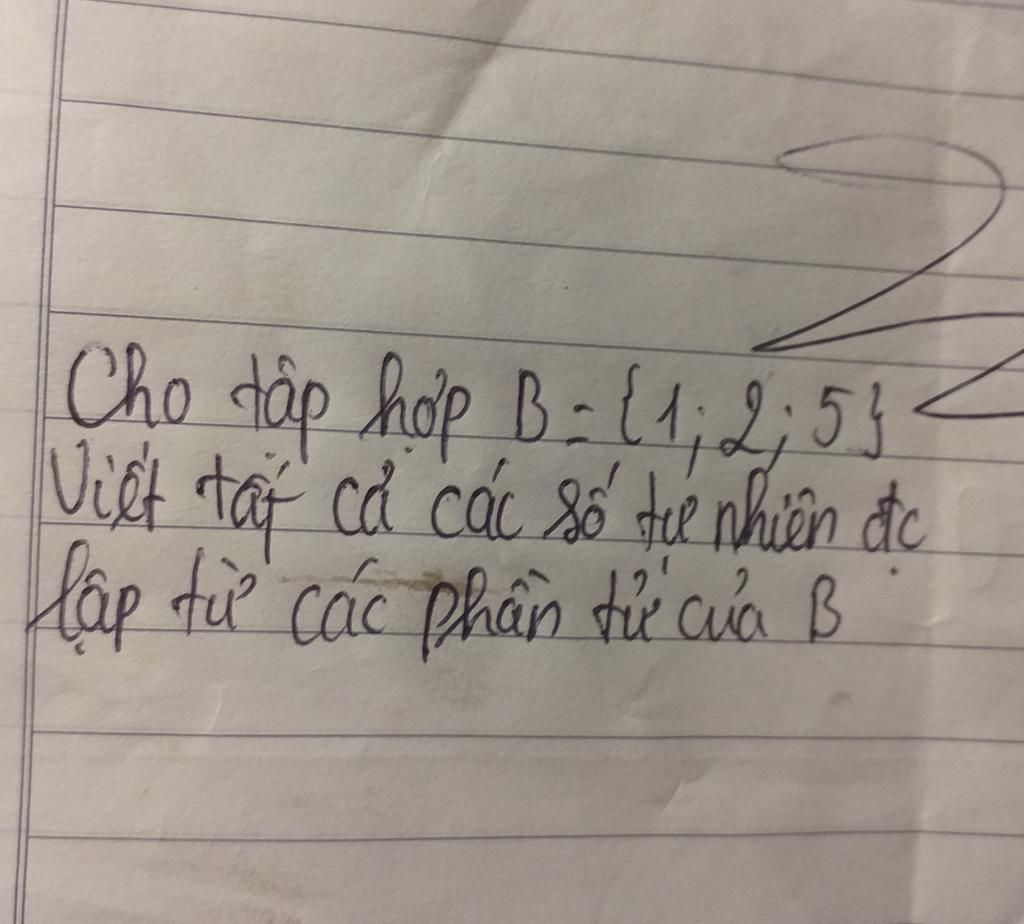 Cho tập hợp B = {1; 2; 5}
Viết tất cả các số tự nhiên đc
lập từ các phần tử của B